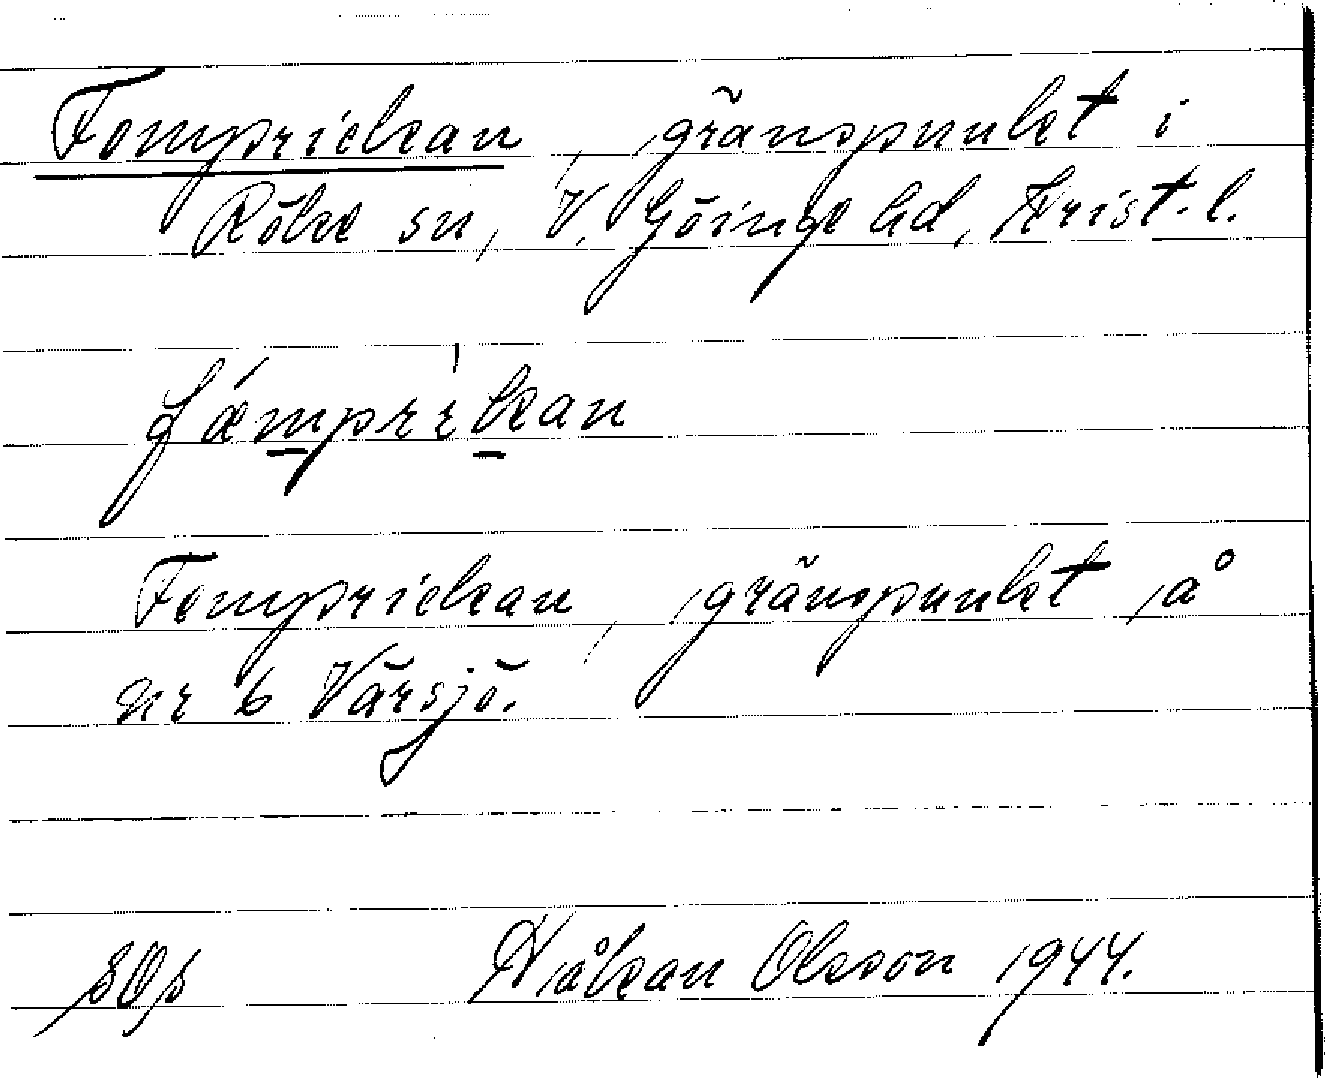 Fempricken, gränspunkt i
Röke sn, V. Göinge hd, Krist. l.
fæ´mprìkan
Fempricken, gränspunkt på
nr 6 Värsjö.
Håkan Olsson 1944.